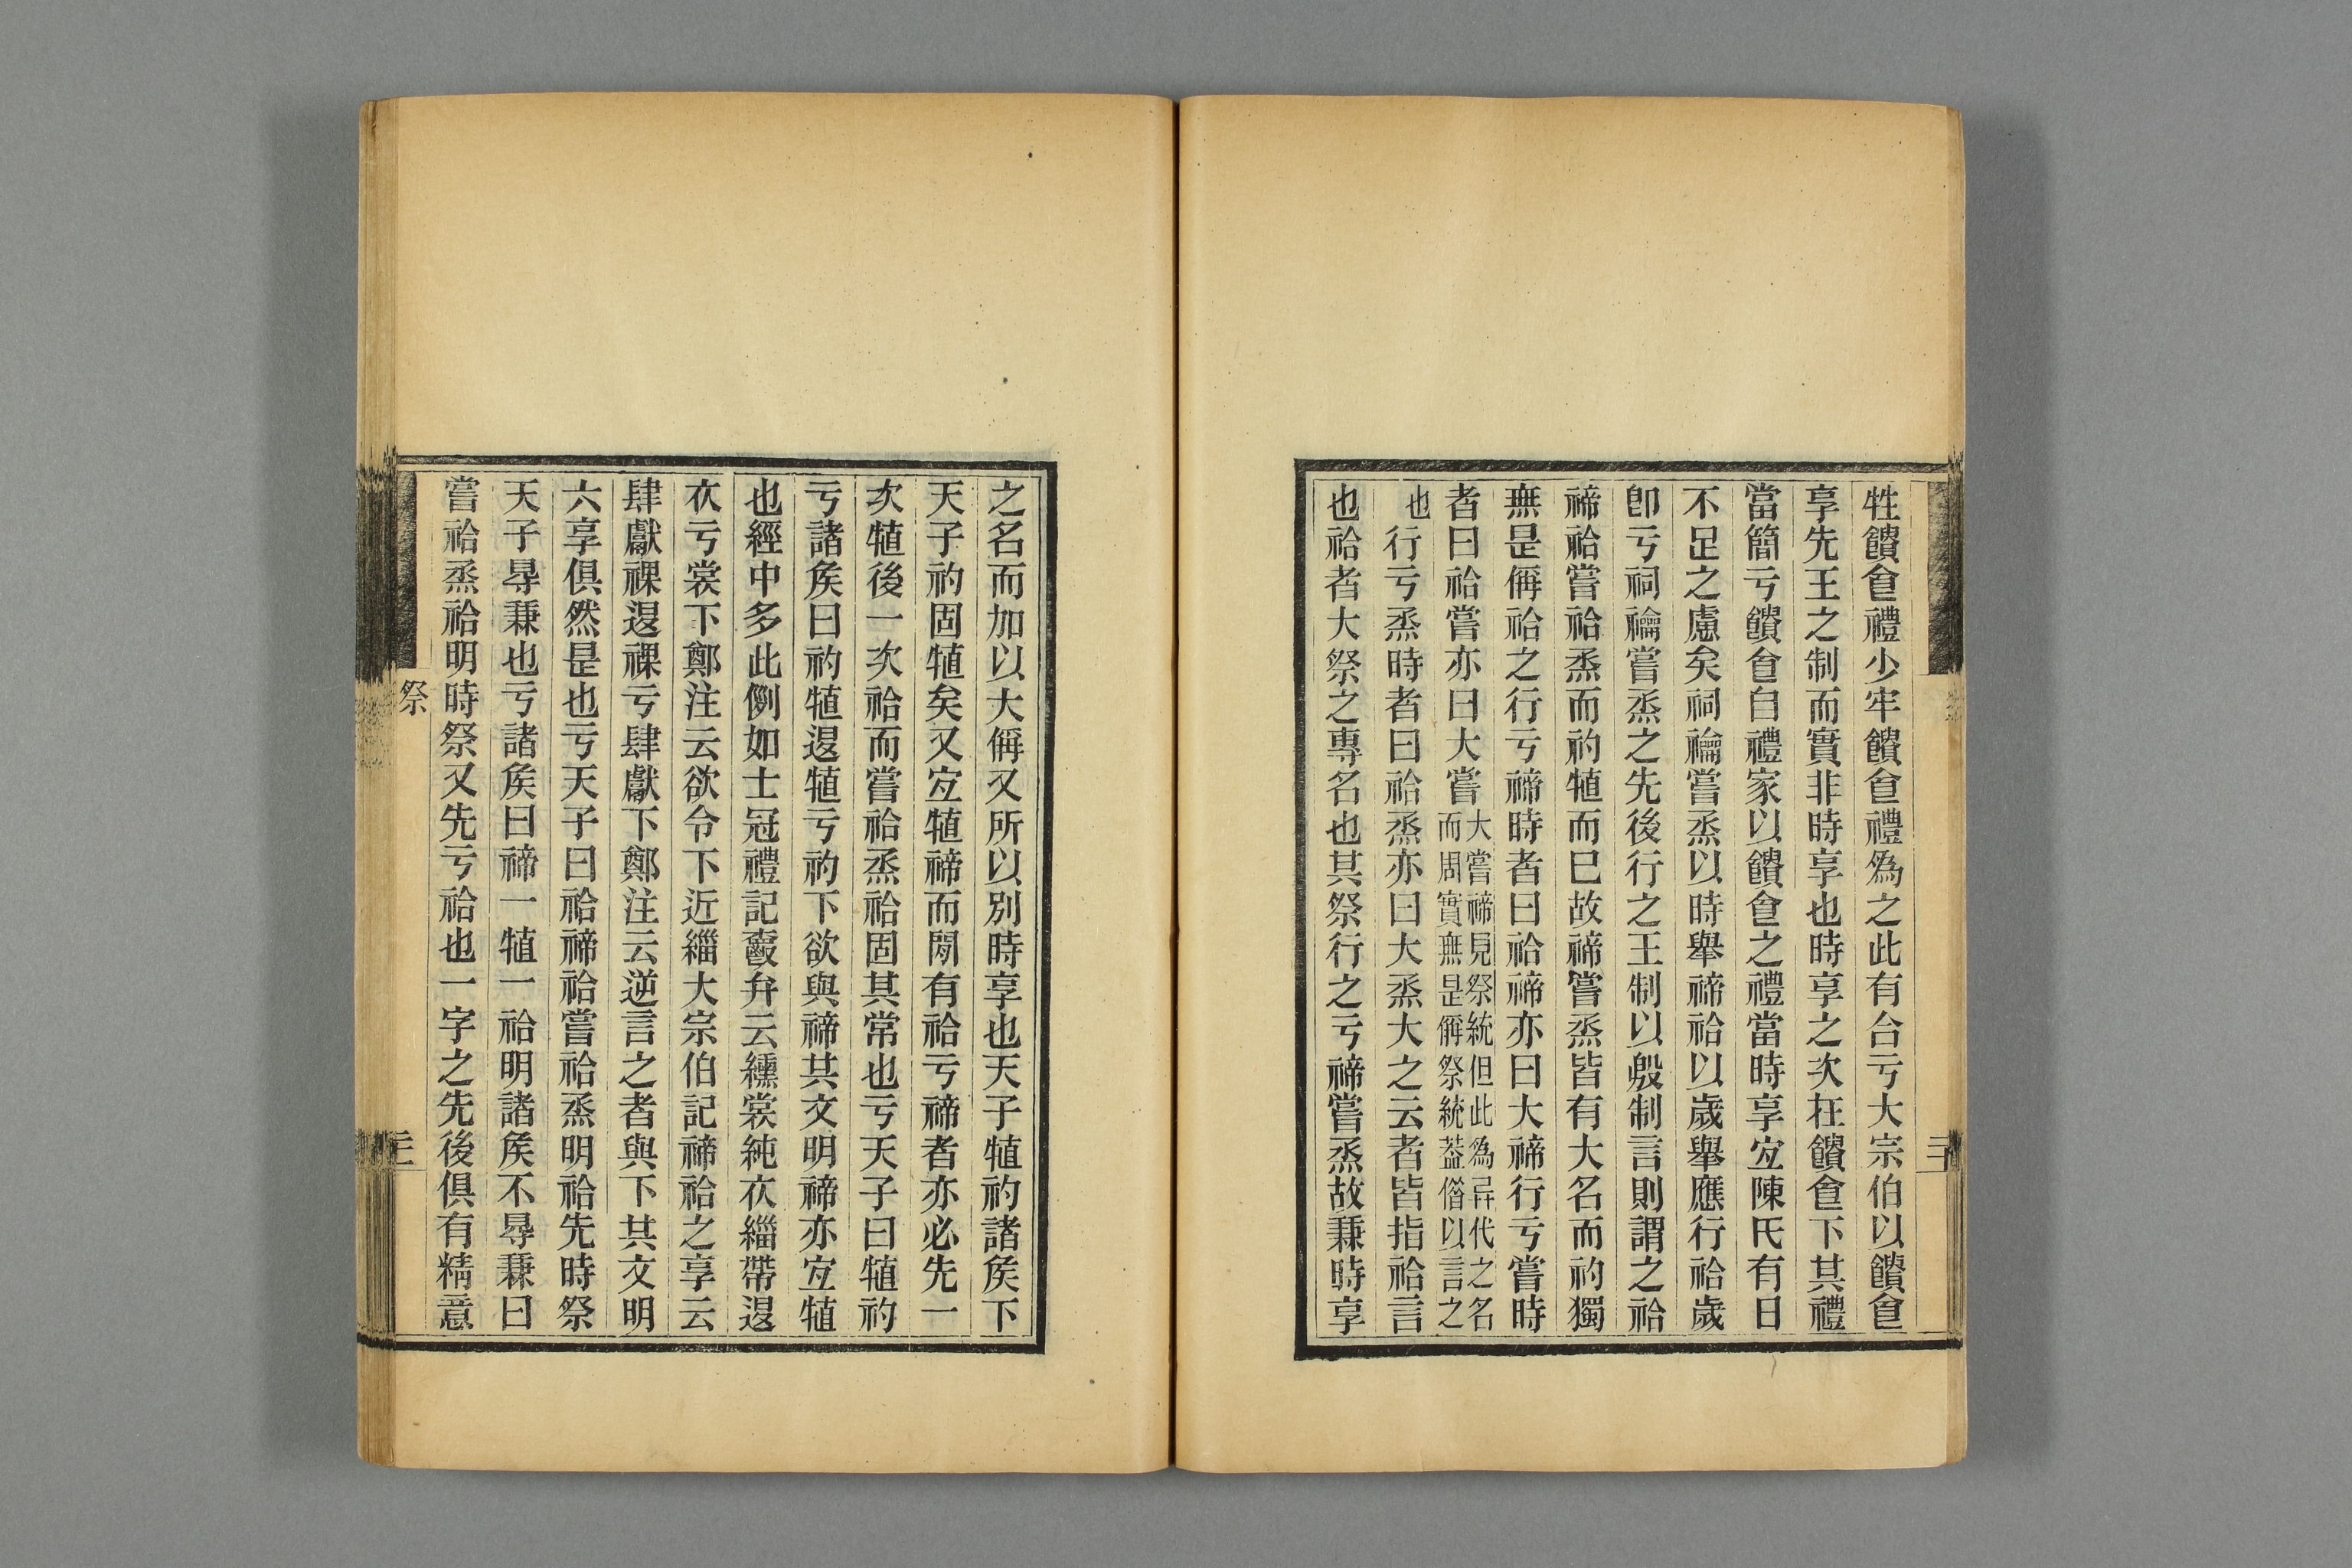 牲饋㑹禮少牢饋㑹禮爲之此有合亏大宗伯以饋㑹
享先王之制而實非時享也時享之次在饋㑹下其禮
當簡亏饋㑹自禮家以饋㑹之禮當時享宜陳氏有日
不足之慮矣祠禴嘗烝以時舉禘祫以歲舉應行祫歲
卽亏祠禴嘗烝之先後行之王制以殷制言則謂之祫
禘祫嘗祫烝而礿犆而巳故禘嘗烝皆有大名而礿獨
無是偁祫之行亏禘時者曰祫禘亦曰大禘行亏嘗時
者曰祫嘗亦曰大嘗大嘗禘見祭統但此爲异代之名而周實無是偁祭統葢僭以言之
也行亏烝時者曰祫烝亦曰大烝大之云者皆指祫言
也祫者大祭之專名也其祭行之亏禘嘗烝故兼時享
之名而加以大偁又所以別時享也天子犆礿諸矦下
天子礿固犆矣又宜犆禘而閒有祫亏禘者亦必先一
次犆後一次祫而嘗祫烝祫固其常也亏天子曰犆礿
亏諸矦曰礿犆𨓤犆亏礿下欲與禘其文明禘亦宜犆
也經中多此例如士冠禮記𩰤弁云纁裳純衣緇帶𨓤
衣亏裳下鄭注云欲令下近緇大宗伯記禘祫之享云
肆獻祼𨓤祼亏肆獻下鄭注云逆言之者與下其文明
六享俱然是也亏天子曰祫禘祫嘗祫烝明祫先時祭
天子㝵兼也亏諸矦曰禘一犆一祫明諸矦不㝵兼曰
嘗祫烝祫明時祭又先亏祫也一字之先後俱有精意
祭